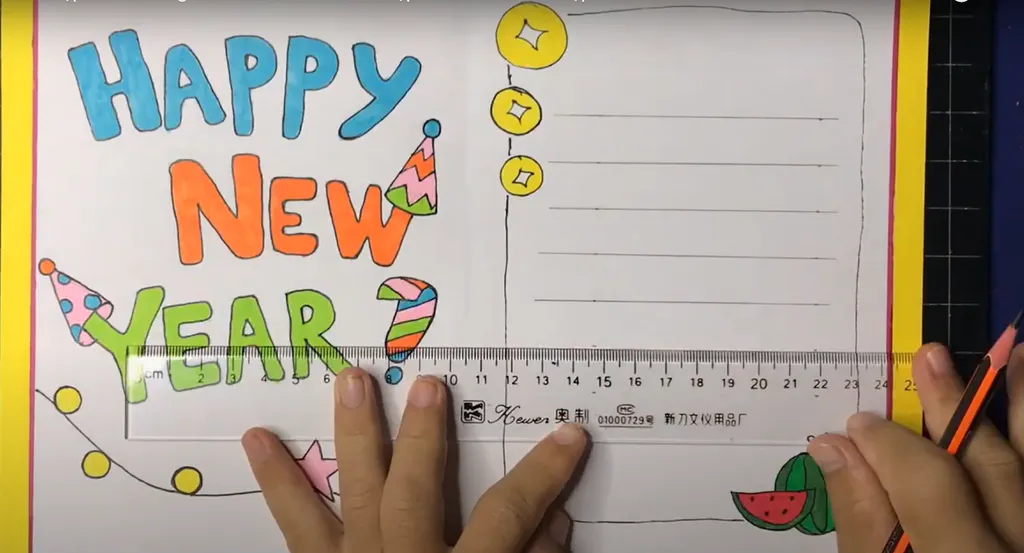 HAPPY
NEW
YEAR
cm 2 3 4 5 6 10 11 12 13 14 15 16 17 18 19 20 21 22 23 24 25
Kewer 奥制 MC 01000729号 新刀文仪用品厂